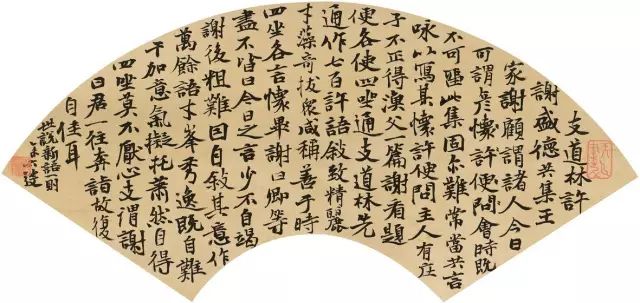 支道林許
謝盛德共集王
家謝顧謂諸人今日
可謂彦懷許便問會時既
不可留此集固亦難常當共言
咏以寫其懷許便問主人有庄
子不正得漁父一篇謝看題
便各使四坐通支道林先
通作七百許語敘致精麗
才藻奇拔衆咸稱善于時
四坐各言懷畢謝曰卿等
盡不皆曰今日之言少不自竭
謝後粗難因自敘其意作
萬餘語才峯秀逸既自難
干加意氣擬托蕭然自得
四坐莫不厭心支謂謝
曰君一往奔詣故復
自佳耳
世說新語一則